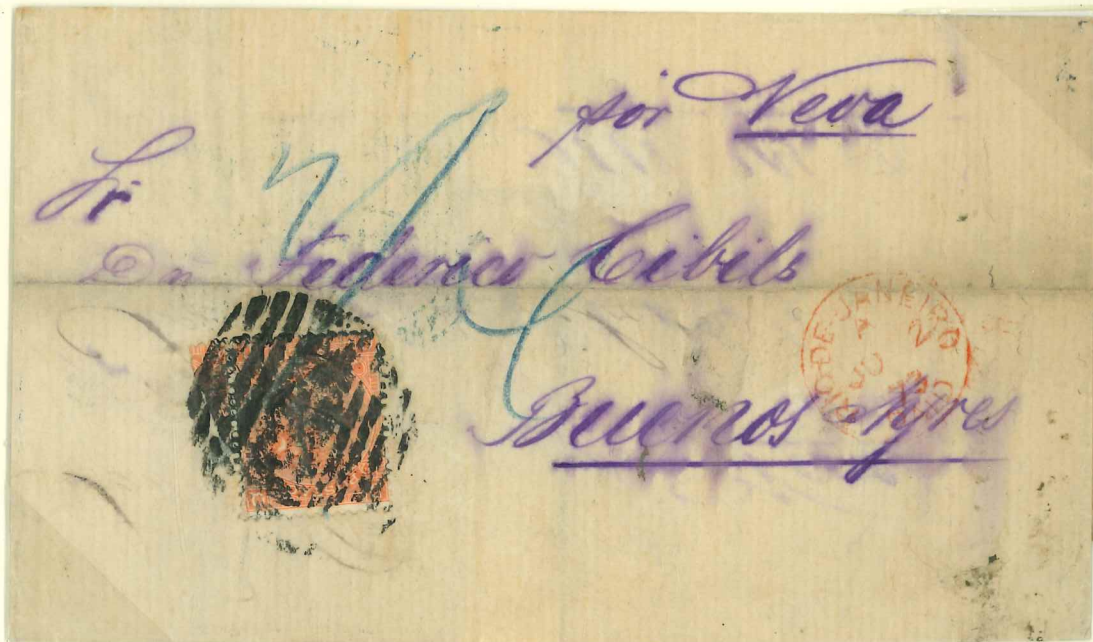 por Neva
Sr
Dn Federico Cibils
RIO DE JANEIRO
Buenos Ayres